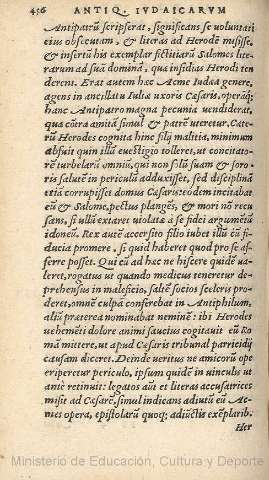 456 ANTIQ. IVDAICARVM
Antipatrū scripserat, significans se voluntati
eius obsecutam, & literas ad Herodē misisse,
& insertū his exemplar fictitiarū Salomes lite-
rarum ad suā dominā, qua insidias Herodi ten
derent. Erat autem hæc Acme Iudæa genere,
agens in ancillatu Iuliæ uxoris Cæsaris, operāq;
hanc Antipatro magna pecunia vendiderat,
qua cūra amitā simul & patrē uteretur. Cate-
rū Herodes cognita hinc filij malitia, minimum
abfuit quin illū è uestigio tolleret, ut concitato-
rē turbelarū omniū, qui non solū suam & soro-
ris salutē in periculū adduxisset, sed disciplina
etiā corrupisset domus Cæsaris: eodem incitabat
eū & Salome, pectus plangēs, & mori nō recu
sans, si ullū extaret violatæ a se fidei argumētū
idoneū. Rex autē accersito filio iubet illū cū fi-
ducia promere, si quid haberet quod pro se af-
ferre posset. Qui cū ad hæc ne hiscere quidē va-
leret, rogatus ut quando medicus teneretur de-
prehensus in maleficio, saltē socios sceleris pro-
deret, omnē culpā conferebat in Antiphilum,
aliū præterea nominabat neminē: ibi Herodes
uehemēti dolore animi saucius cogitauit eū Ro
mā mittere, ut apud Cæsaris tribunal parricidij
causam diceret. Deinde ueritus ne amicorū ope
eriperetur periculo, ipsum quidē in vinculis ut
antè retinuit: legatos aūt et literas accusatrices
misit ad Cæsarē, simul indicans adiutū eū Ac-
mes opera, epistolarū quoq; adiūctis exēplarib:
Her
Ministerio de Educación, Cultura y Deporte